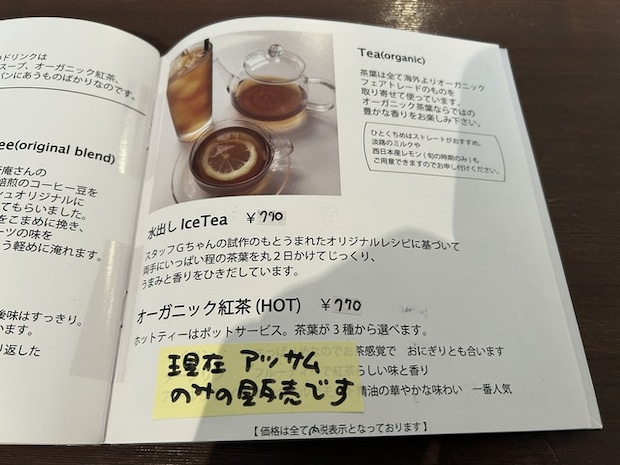 ドリンクは
スープ、オーガニック紅茶、
パンにあうものばかりなのです。
ee(original blend)
庵さんの
焙煎のコーヒー豆を
シュオリジナルに
てもらいました。
をこまめに挽き、
ーツの味を
う軽めに淹れます。
後味はすっきり。
います。
り返した
Tea(organic)
茶葉は全て海外よりオーガニック
フェアトレードのものを
取り寄せて使っています。
オーガニック茶葉ならではの
豊かな香りをお楽しみ下さい。
ひとくちめはストレートがおすすめ。
淡路のミルクや
西日本産レモン(旬の時期のみ)も
ご用意できますのでお申し付けください。
水出し IceTea ￥790
スタッフGちゃんの試作のもとうまれたオリジナルレシピに基づいて
両手にいっぱい程の茶葉を丸2日かけてじっくり、
うまみと香りをひきだしています。
オーガニック紅茶(HOT) ￥770
ホットティーはポットサービス。茶葉が3種から選べます。
お茶感覚で おにぎりとも合います
紅茶らしい味と香り
精油の華やかな味わい 一番人気
現在 アッサム
のみの販売です
【 価格は全て内税表示となっております 】